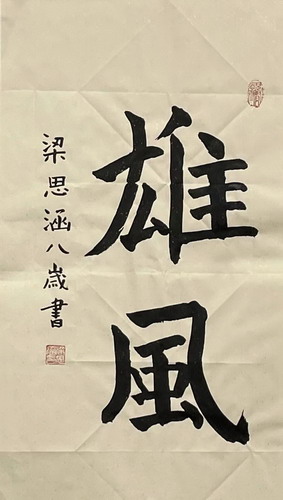 雄風
梁思涵八歲書